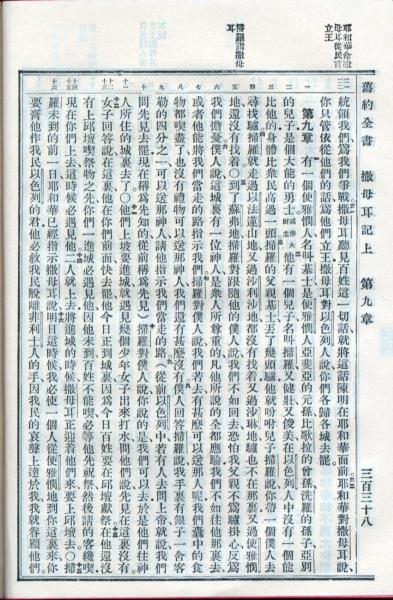 耶和華命撒
母耳從民言
立王
掃羅謁撒母
耳
舊約全書 撒母耳記上 第九章 三百三十八
統領我們爲我們爭戰撒母耳聽見百姓這一切話就將這話陳明在耶和華面前耶和華對撒母耳說
你只管依從他們的話爲他們立王撒母耳對以色列人說你們各歸各城去罷
第九章 有一個便雅憫人名叫基士是便雅憫人亞斐亞的元孫比歌拉的曾孫洗羅的孫子亞別
的兒子是個大能的勇士他有一個兒子名叫掃羅又健壯又俊美在以色列人中沒有一個能
比他的身體比衆民高過一頭掃羅的父親基士丟了幾頭驢就吩咐兒子掃羅說你帶一個僕人去
尋找驢掃羅就走過以法蓮山地又過沙利沙地都沒有找着又過沙琳地驢也不在那裏又過便雅憫
地還沒有找着○到了蘇弗地掃羅對跟隨他的僕人說我們不如回去恐怕我父親不爲驢掛心反爲
我們擔憂僕人說這城裏有一位神人是衆人所尊重的凡他所說的全都應驗我們不如往他那裏去
或者他能將我們當走的路指示我們掃羅對僕人說我們若去有甚麼可以送那人呢我們囊中的食
物都喫盡了也沒有禮物可以送那神人我們還有甚麼沒有僕人回答掃羅說我手裏有銀子一舍客
勒的四分之一可以送那神人請他指示我們當走的路（從前以色列中若有人去問上帝就說我們
問先見去罷現在稱爲先知的從前稱爲先見）掃羅對僕人說你說的是我們可以去於是他們往神
人所住的城裏去了○他們上坡要進城就遇見幾個少年女子出來打水問他們說先見在這裏沒有
女子回答說在這裏他在你們前面快去罷他今日正到城裏因爲今日百姓要在邱壇獻祭在他還沒
有上邱壇喫祭物之先你們一進城必遇見他因他未到百姓不能喫必等他先祝祭然後請的客纔喫
現在你們上去這時候必遇見他二人就上去將進城的時候撒母耳正迎着他們來要上邱壇去○掃
羅未到的前一日耶和華已經指示撒母耳說明日這時候我必使一個人從便雅憫地到你這裏來你
要膏他作我民以色列的君他必救我民脫離非利士人的手因我民的哀聲上達於我我就眷顧他們